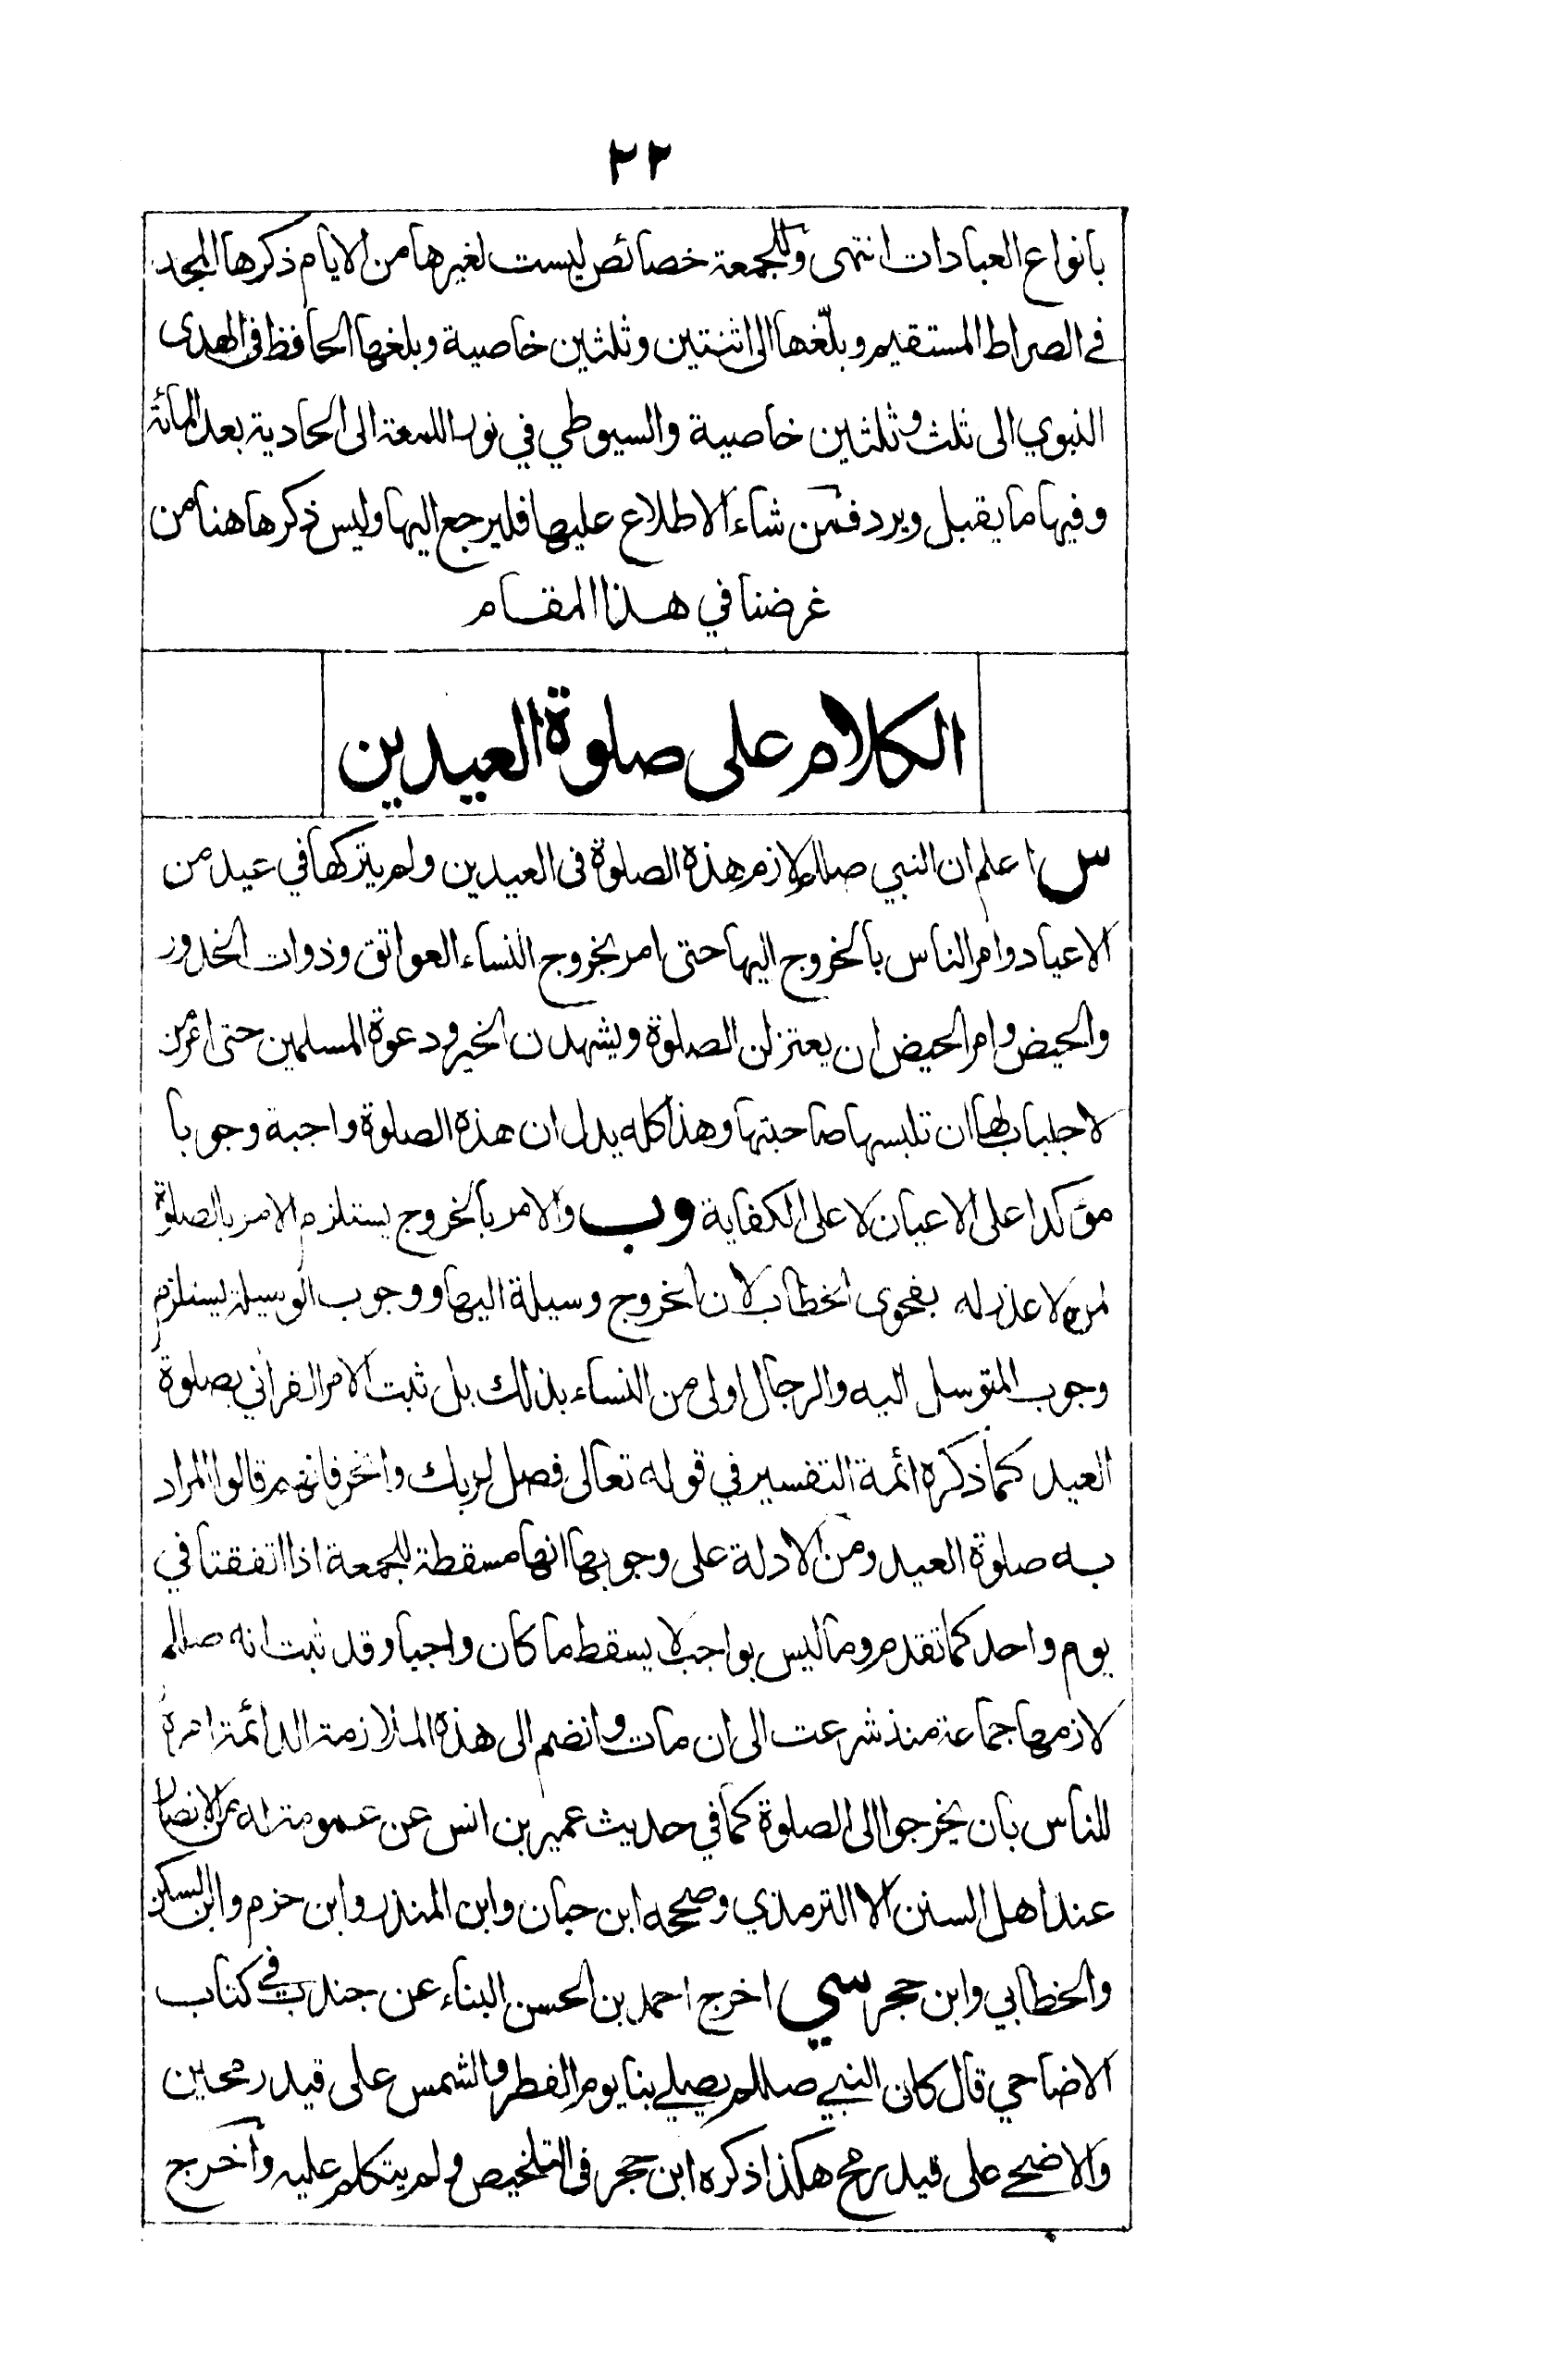 ٢٢
بانواع العبادات انتهى وللجمعة خصائص ليست لغيرها من الايام ذكرها المجد
في الصراط المستقيم وبلّغها الى اثنتين وثلثين خاصية وبلغها الحافظ فى الهدى
النبوي الى ثلث وثلثين خاصية والسيوطي في نور اللمعة الى الحادية بعد المائة
وفيها ما يقبل ويرد فمن شاء الاطلاع عليها فليرجع اليها وليس ذكرها هنا من
غرضنا في هذا المقام
الكلام على صلوة العيدين
س اعلم ان النبي صللم لازم هذه الصلوة فى العيدين ولم يتركها في عيد من
الاعياد وامر الناس بالخروج اليها حتى امر بخروج النساء العواتق وذوات الخدور
والحيض وامر الحيض ان يعتزلن الصلوة ويشهدن الخير ودعوة المسلمين حتى امر من
لا جلباب لها ان تلبسها صاحبتها وهذا كله يدل ان هذه الصلوة واجبة وجوبا
مؤكدا على الاعيان لا على الكفاية وب والامر بالخروج يستلزم الامر بالصلوة
لمن لا عذر له بفحوى الخطاب لان الخروج وسيلة اليها ووجوب الوسيلة يستلزم
وجوب المتوسل اليه والرجال اولى من النساء بذلك بل ثبت الامر القراني بصلوة
العيد كما ذكره ائمة التفسير في قوله تعالى فصل لربك وانحر فانهم قالوا المراد
به صلوة العيد ومن الادلة على وجوبها انها مسقطة للجمعة اذا اتفقتا في
يوم واحد كما تقدم وما ليس بواجب لا يسقط ما كان واجبا وقد ثبت انه صللم
لازمها جماعة منذ شرعت الى ان مات وانضم الى هذه الملازمة الدائمة امره
للناس بان يخرجوا الى الصلوة كما في حديث عمير بن انس عن عمومة له من الانصار
عند اهل السنن الا الترمذي وصححه ابن حبان وابن المنذر وابن حزم وابن السكن
والخطابي وابن حجر سي اخرج احمد بن الحسن البناء عن جندب في كتاب
الاضاحي قال كان النبي صللم يصلي بنا يوم الفطر والشمس على قيد رمحين
والاضحى على قيد رمح هكذا ذكره ابن حجر فى التلخيص ولم يتكلم عليه وأخرج